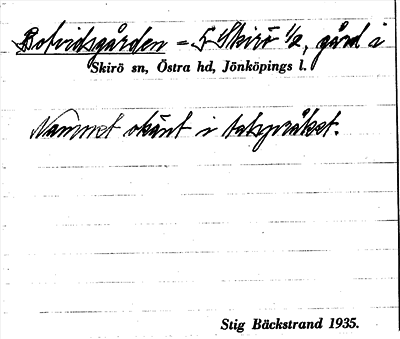 Botvidsgården = 5 Skirö 1/2, gård i
Skirö sn, Östra hd, Jönköpings l.
Namnet okänt i talspråket.
Stig Bäckstrand 1935.